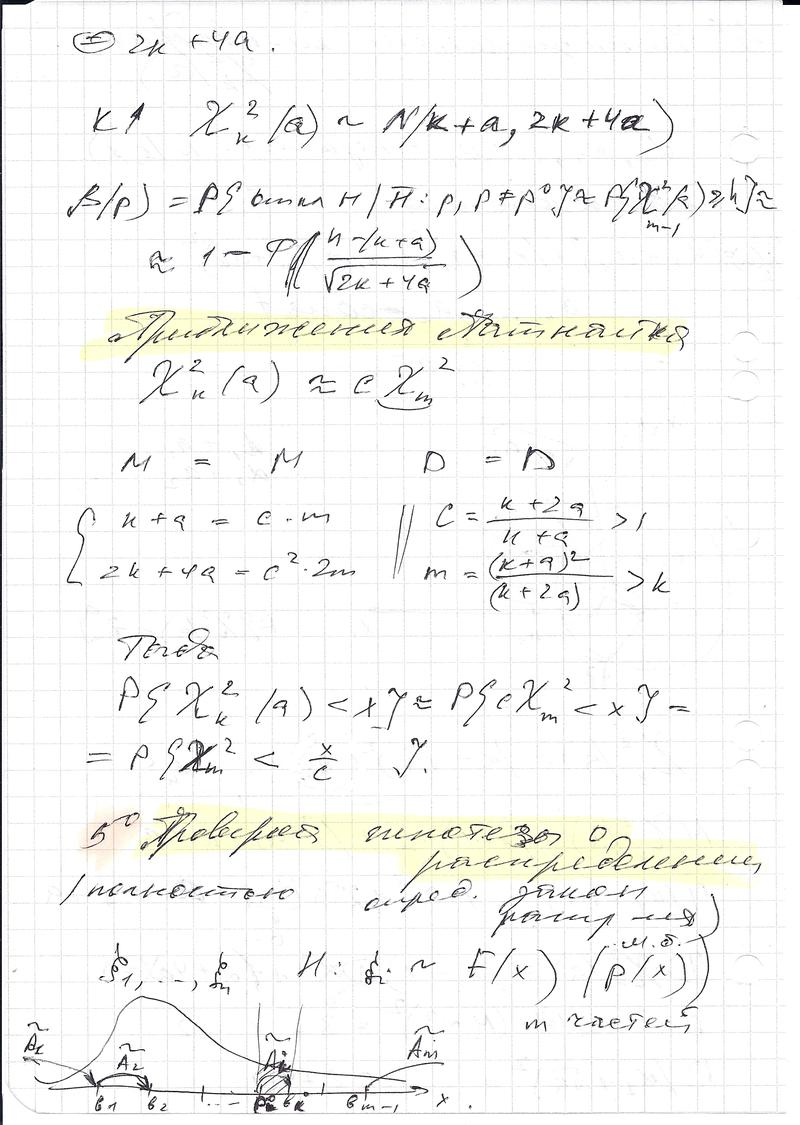 = 2k + 4a.
k↑ χ²ₖ(a) ~ N(k+a, 2k+4a)
β(p) = P{откл H | H̄: p, p ≠ p⁰} ≈ P{χ²ₘ₋₁(a) ≥ h} ≈
≈ 1 − Φ((h−(k+a))/√(2k+4a))
Приближения Патнайка
χ²ₖ(a) ≈ c χ²ₘ
M = M D = D
k+a = c·m c = (k+2a)/(k+a) > 1
2k+4a = c²·2m m = (k+a)²/(k+2a) > k
Тогда
P{χ²ₖ(a) < x} ≈ P{cχ²ₘ < x} =
= P{χ²ₘ < x/c}.
5⁰ Проверка гипотезы о
распределении
(полностью опред. закон
распр-ия)
ξ₁, ..., ξₙ H: ξᵢ ~ F(x) (м.б. p(x))
m частей
Ã₁ Ã₂ Ãₖ Ãₘ
в₁ в₂ ... вₖ вₘ₋₁ x.